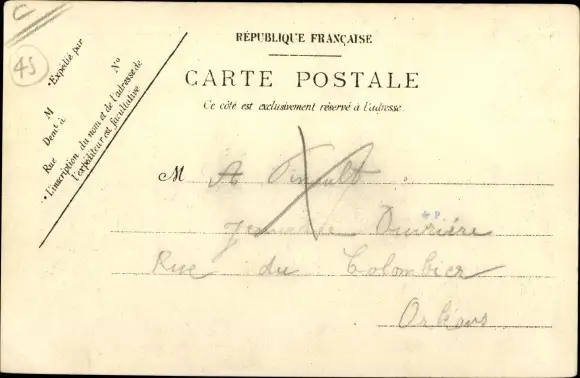 C
45
RÉPUBLIQUE FRANÇAISE
CARTE POSTALE
Ce côté est exclusivement réservé à l'adresse.
Expédié par
M
N°
Demt à
Rue
• L'inscription du nom et de l'adresse de
l'expéditeur est facultative
M A Pinault
Ouvrière
Rue du Colombier
Orléans